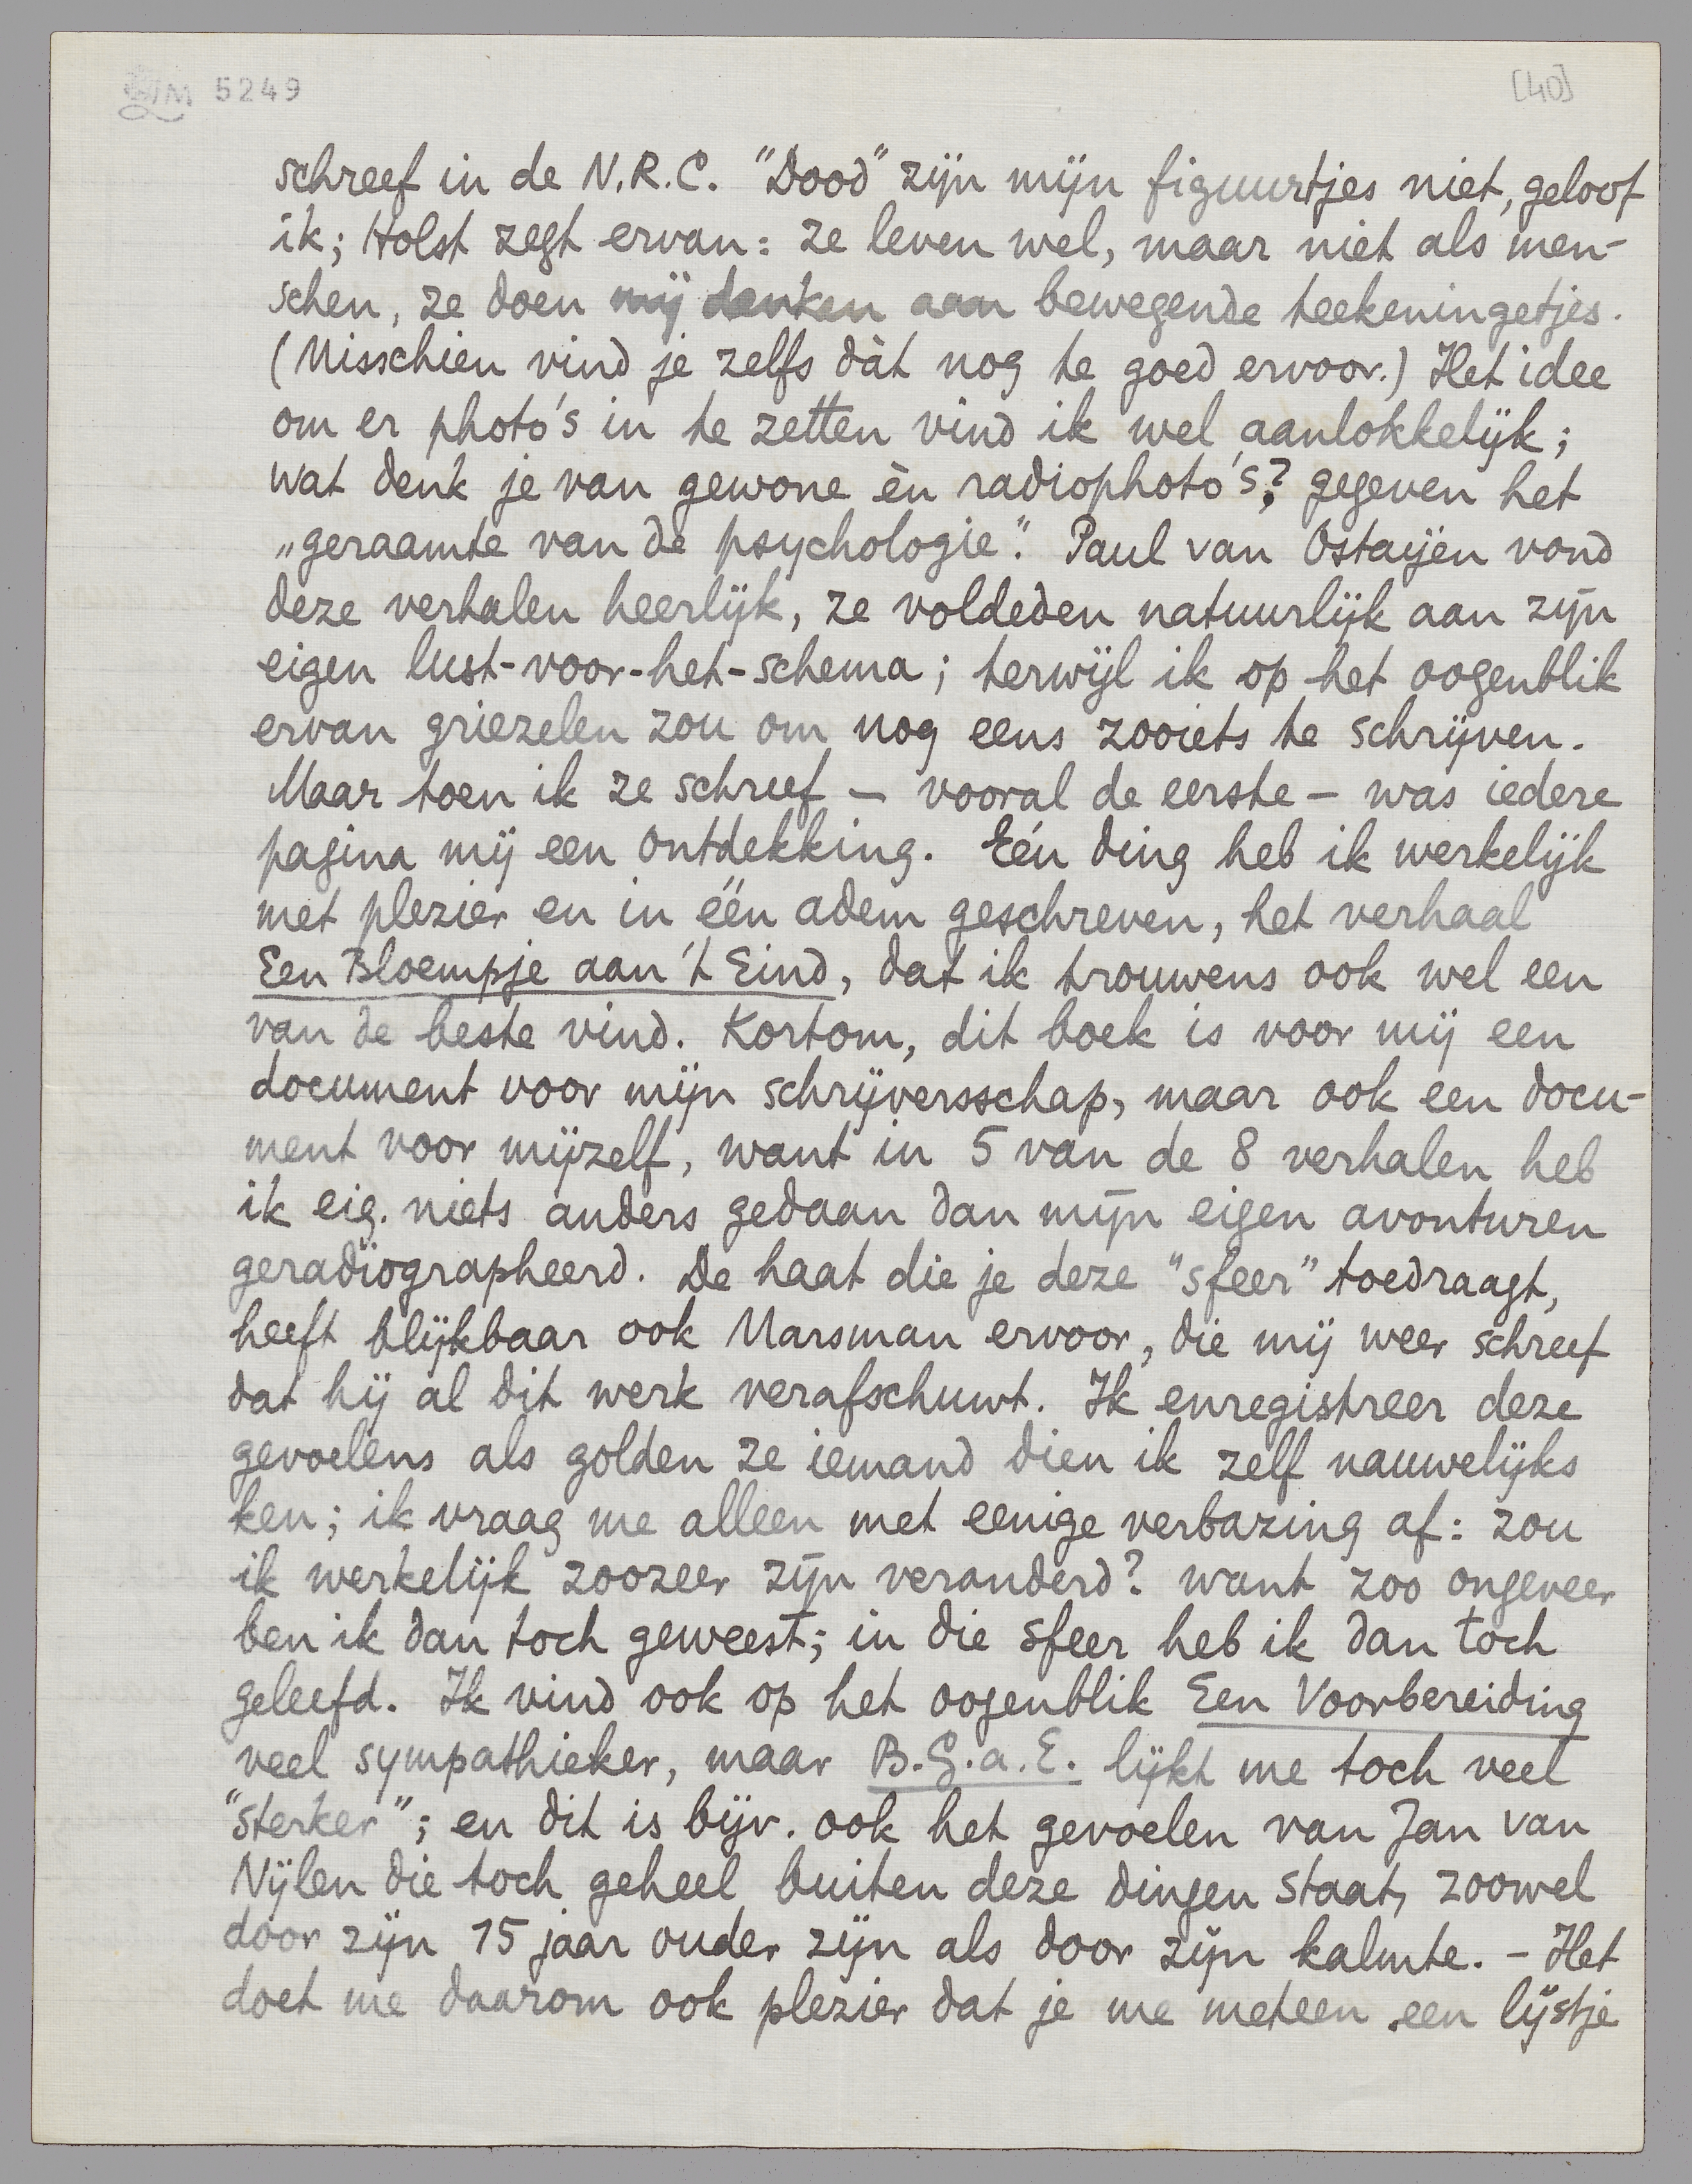 LM 5249
[40]
schreef in de N.R.C. "Dood" zijn mijn figuurtjes niet, geloof
ik; Holst zegt ervan: ze leven wel, maar niet als men-
schen, ze doen mij denken aan bewegende teekeningetjes.
(Misschien vind je zelfs dàt nog te goed ervoor.) Het idee
om er photo's in te zetten vind ik wel aanlokkelijk;
wat denk je van gewone èn radiophoto's? gegeven het
„geraamte van de psychologie". Paul van Ostaijen vond
deze verhalen heerlijk, ze voldeden natuurlijk aan zijn
eigen lust-voor-het-schema; terwijl ik op het oogenblik
ervan griezelen zou om nog eens zooiets te schrijven.
Maar toen ik ze schreef — vooral de eerste — was iedere
pagina mij een ontdekking. Eén ding heb ik werkelijk
met plezier en in één adem geschreven, het verhaal
Een Bloempje aan 't Eind, dat ik trouwens ook wel een
van de beste vind. Kortom, dit boek is voor mij een
document voor mijn schrijversschap, maar ook een docu-
ment voor mijzelf, want in 5 van de 8 verhalen heb
ik eig. niets anders gedaan dan mijn eigen avonturen
geradiographeerd. De haat die je deze "sfeer" toedraagt,
heeft blijkbaar ook Marsman ervoor, die mij weer schreef
dat hij al dit werk verafschuwt. Ik enregistreer deze
gevoelens als golden ze iemand dien ik zelf nauwelijks
ken; ik vraag me alleen met eenige verbazing af: zou
ik werkelijk zoozeer zijn veranderd? want zoo ongeveer
ben ik dan toch geweest; in die sfeer heb ik dan toch
geleefd. Ik vind ook op het oogenblik Een Voorbereiding
veel sympathieker, maar B.G.a.E. lijkt me toch veel
"sterker"; en dit is bijv. ook het gevoelen van Jan van
Nijlen die toch geheel buiten deze dingen staat, zoowel
door zijn 15 jaar ouder zijn als door zijn kalmte. – Het
doet me daarom ook plezier dat je me meteen een lijstje